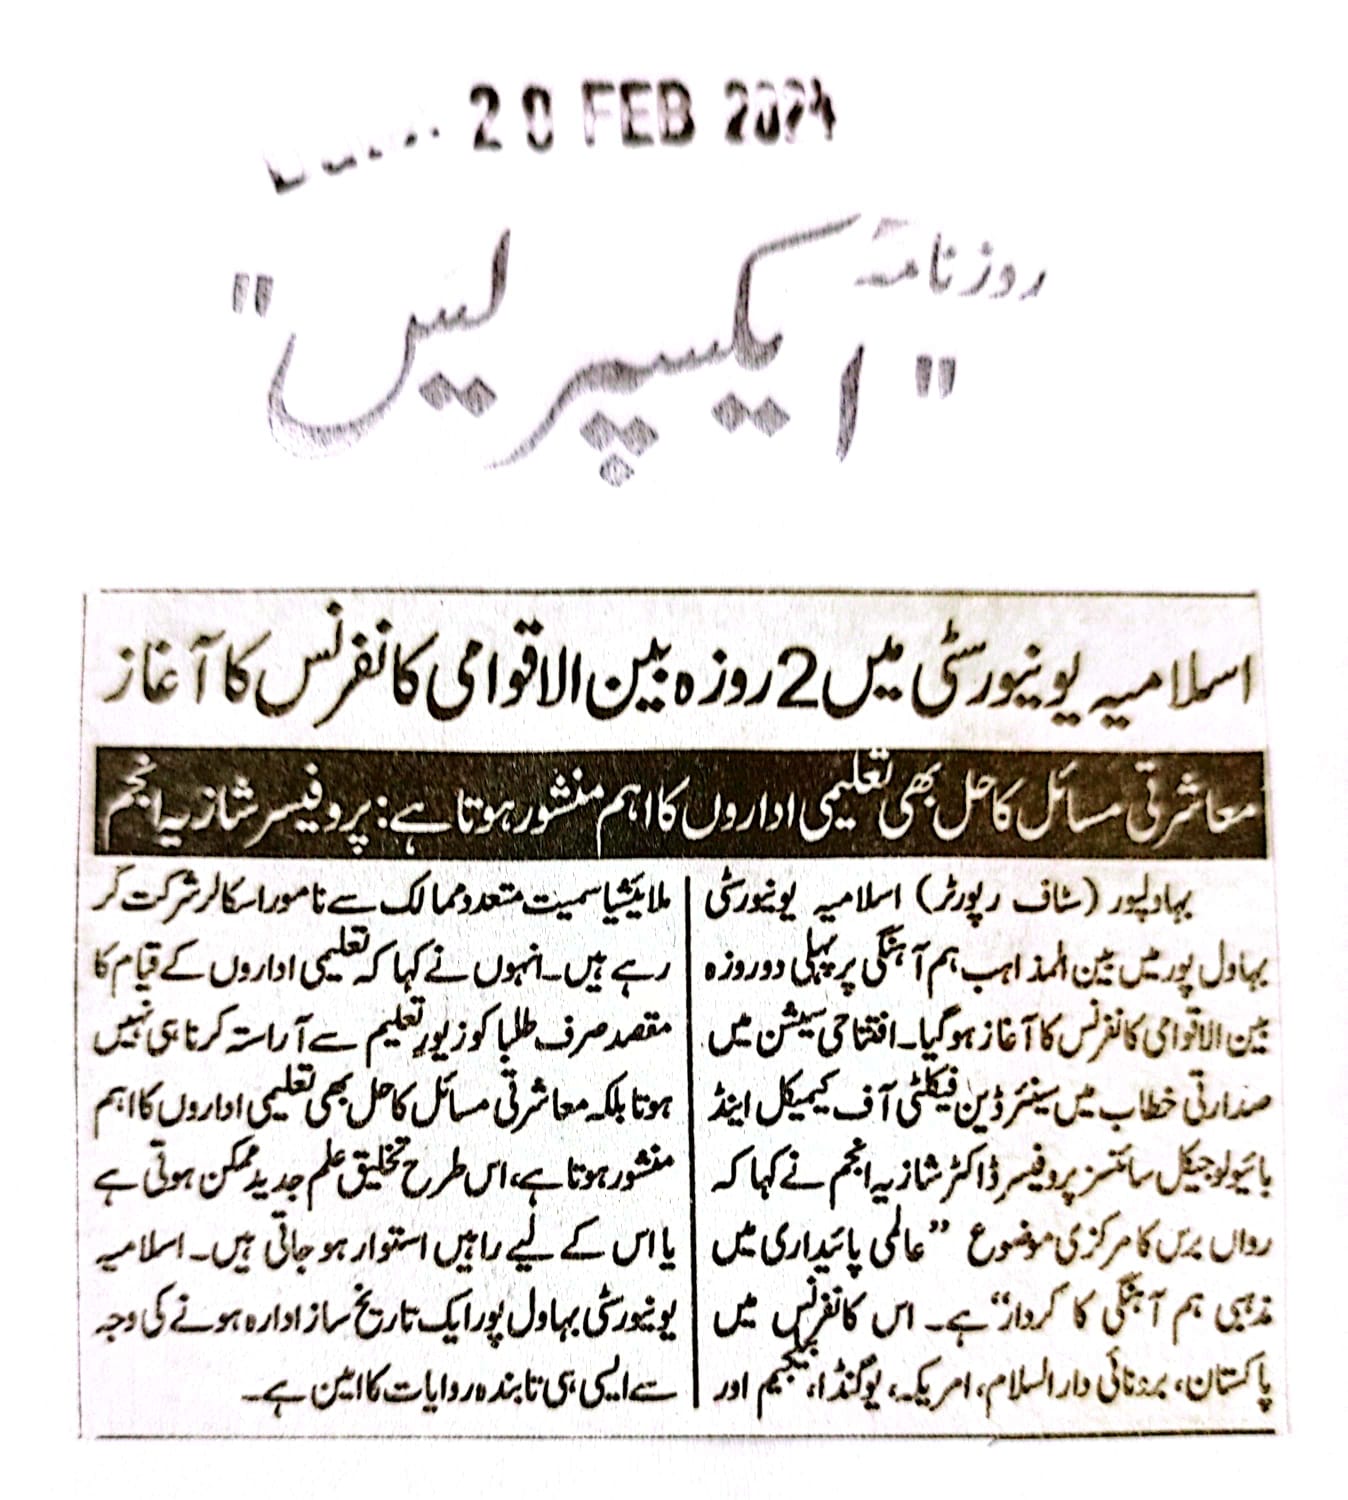 28 FEB 2024
روزنامہ
"ایکسپریس"
اسلامیہ یونیورسٹی میں 2 روزہ بین الاقوامی کانفرنس کا آغاز
معاشرتی مسائل کا حل بھی تعلیمی اداروں کا اہم منشور ہوتا ہے: پروفیسر شازیہ انجم
بہاولپور (سٹاف رپورٹر) اسلامیہ یونیورسٹی
بہاول پور میں بین المذاہب ہم آہنگی پر پہلی دو روزہ
بین الاقوامی کانفرنس کا آغاز ہو گیا۔ افتتاحی سیشن میں
صدارتی خطاب میں سینئر ڈین فیکلٹی آف کیمیکل اینڈ
بائیولوجیکل سائنسز پروفیسر ڈاکٹر شازیہ انجم نے کہا کہ
رواں برس کا مرکزی موضوع ”عالمی پائیداری میں
مذہبی ہم آہنگی کا کردار“ ہے۔ اس کانفرنس میں
پاکستان، برونائی دارالسلام، امریکہ، یوگنڈا، بیلجیم اور
ملائیشیا سمیت متعدد ممالک سے نامور اسکالر شرکت کر
رہے ہیں۔ انہوں نے کہا کہ تعلیمی اداروں کے قیام کا
مقصد صرف طلبا کو زیور تعلیم سے آراستہ کرنا ہی نہیں
ہوتا بلکہ معاشرتی مسائل کا حل بھی تعلیمی اداروں کا اہم
منشور ہوتا ہے، اس طرح تخلیق علم جدید ممکن ہوتی ہے
یا اس کے لیے راہیں استوار ہو جاتی ہیں۔ اسلامیہ
یونیورسٹی بہاول پور ایک تاریخ ساز ادارہ ہونے کی وجہ
سے ایسی ہی تابندہ روایات کا امین ہے۔